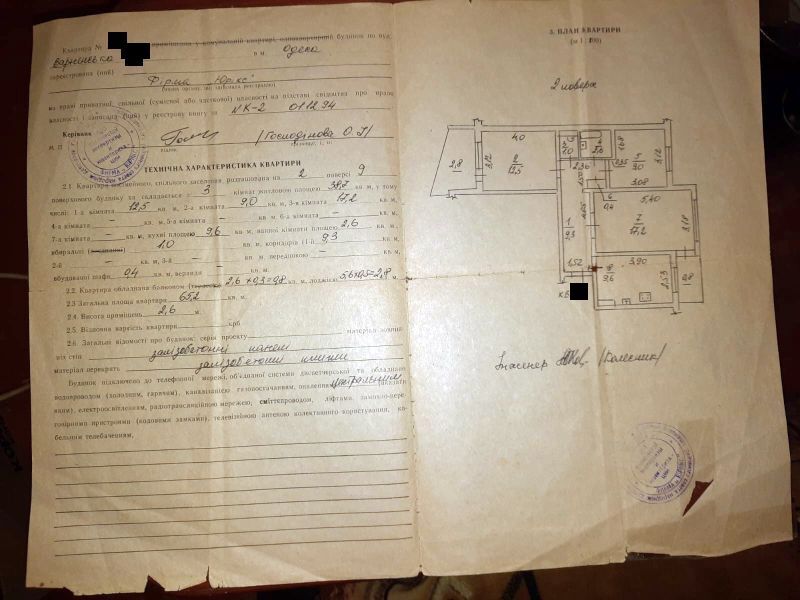 Квартира № приміщення у комунальній квартирі, одноквартирний будинок по вул.
в м. Одеса
зареєстрована (ний) Фірма "Юрікс"
(назва органу, які здійснила реєстрацію)
на праві приватної, спільної (сумісної або часткової) власності на підставі свідоцтва про право
власності і записана (ний) у реєстрову книгу за N К-2 01.12.94
Керівник /Господінова О.Г/
М. П.
ТЕХНІЧНА ХАРАКТЕРИСТИКА КВАРТИРИ
2.1. Квартира розташована на 2 поверсі 9
поверхового будинку та складається з 3 кімнат житловою площею 38,7 кв. м, у тому
числі: 1-а кімната 12,5 кв. м, 2-а кімната 9,0 кв. м, 3-я кімната 17,2 кв. м,
4-а кімната — кв. м, 5-а кімната — кв. м 6-а кімната — кв. м,
7-а кімната — кв. м, кухні площею 9,6 кв. м, ванної кімнати площею 2,6 кв. м,
вбиральні 1,0 кв. м, коридорів (1-й 9,3
2-й — кв. м, 3-й — кв. м, передпокою — кв. м,
вбудовані шафи 0,4 кв. м, веранди
2.2. Квартира обладнана балконом 2,6 × 0,3=0,8 кв. м, лоджією 5,6×0,5=2,8 м.
2.3 Загальна площа квартири 65,2 кв. м.
2.4. Висота приміщень 2,6 м.
2.5. Відновна вартість квартири крб
2.6. Загальні відомості про будинок: серія проекту матеріал зовніш-
ніх стін залізобетонні панелі
матеріал перекриття залізобетонні плити
Будинок підключено до телефонної мережі, об'єднаної системи диспетчерської та обладнано
водопроводом (холодним, гарячим), каналізацією газопостачанням, опаленням центральним
електроосвітленням, радіотрансляційною мережею, сміттєпроводом, ліфтами, замочно-пере-
говірними пристроями (кодовими замками), телевізійною антеною колективного користування, ка-
бельним телебаченням,
3. ПЛАН КВАРТИРИ
(м 1 : 100)
2 поверх
2,8
3,12
4,0
2
12,5
1,0
2,6
1,68
5
9,0
3,12
3,08
2,36
1,50
6
0,4
5,40
4,65
7
17,2
3,18
1
9,3
1,52
3,90
8
9,6
2,53
0,8
КВ
Інженер /Колесник/